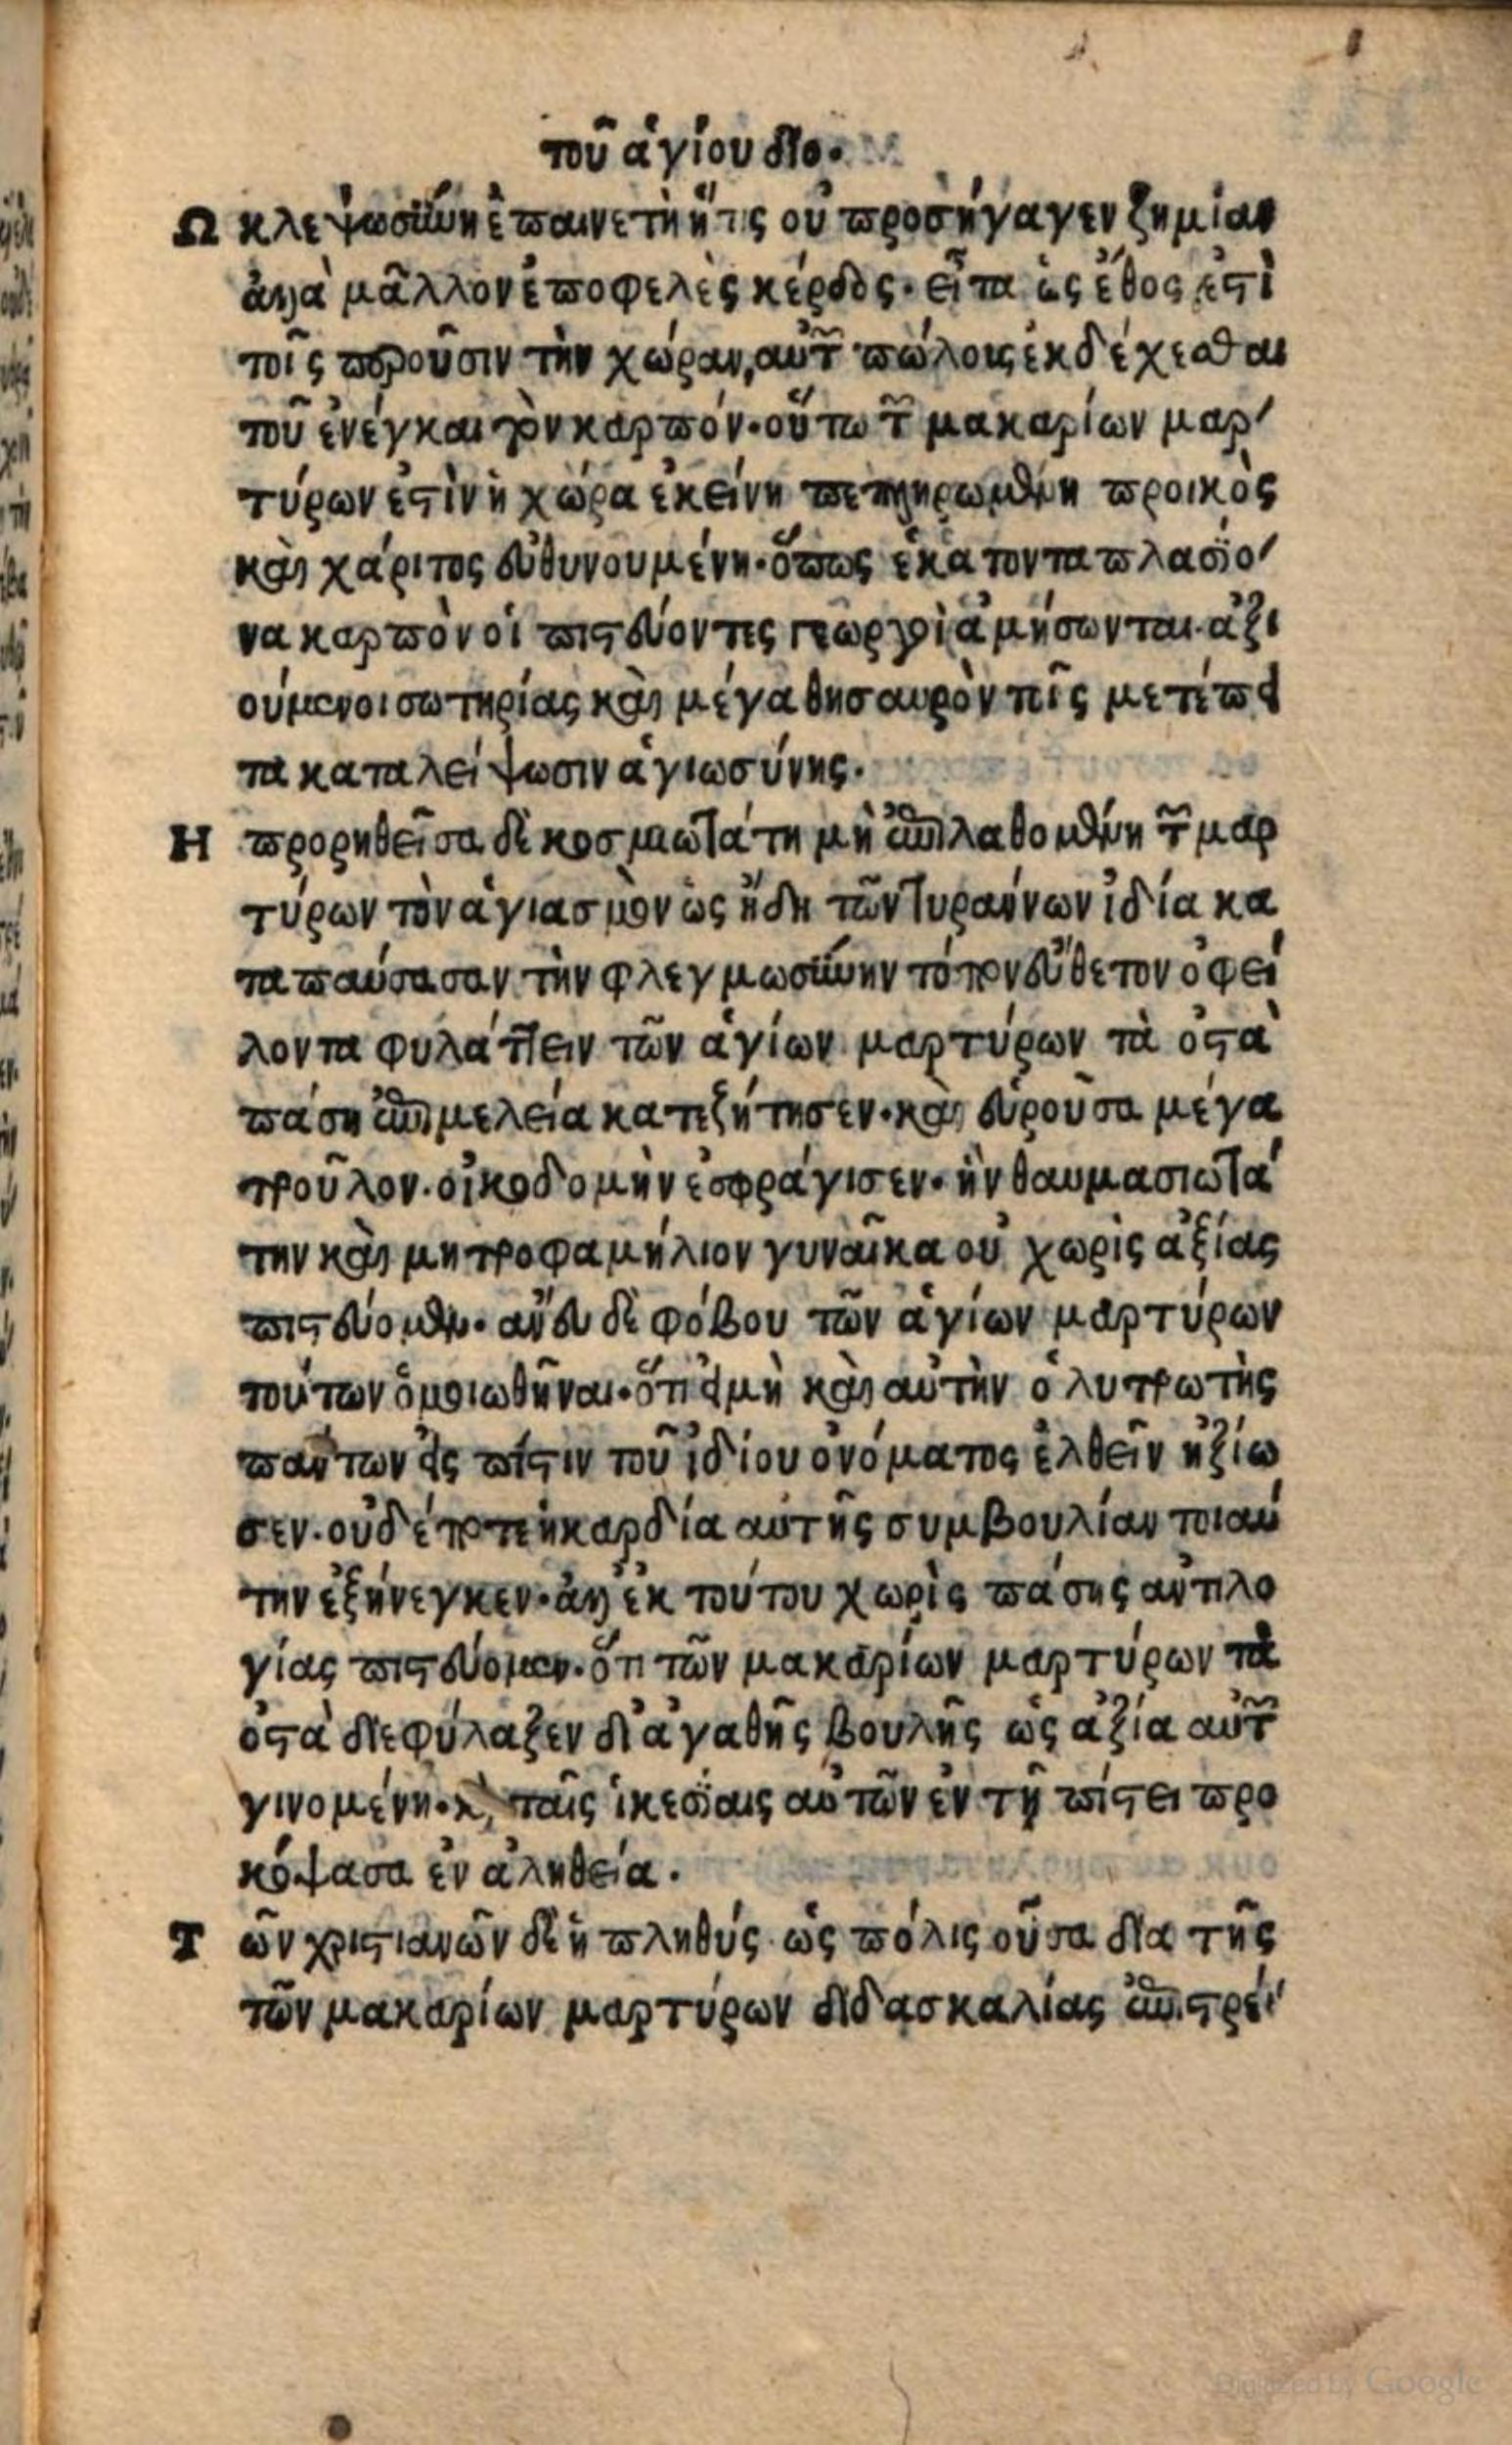 τοῦ ἁγίου διο.
Ω κλεψωσύνη ἐπαινετὴ ἥτις οὐ προσήγαγεν ζημίαν
ἀλλὰ μᾶλλον ἐποφελὲς κέρδος. εἶτα ὡς ἔθος ἐστὶ
τοῖς παροῦσιν τὴν χώραν, αὐτῶν πώλοις ἐκδέχεσθαι
τοῦ ἐνέγκαι τὸν καρπόν. οὕτω τῶν μακαρίων μαρ/
τύρων ἐστὶν ἡ χώρα ἐκείνη πεπληρωμένη προικὸς
καὶ χάριτος εὐθυνουμένη. ὅπως ἑκατονταπλασίο/
να καρπὸν οἱ πιστεύοντες γεωργοὶ ἀμήσωνται. ἀξι
ούμενοι σωτηρίας καὶ μέγα θησαυρὸν τοῖς μετέπει
τα καταλείψωσιν ἁγιωσύνης.
Η προρηθεῖσα δὲ κοσμιωτάτη μὴ ἐπιλαθομένη τῶν μαρ
τύρων τὸν ἁγιασμὸν ὡς ἤδη τῶν τυράννων ἰδία κα
ταπαύσασαν τὴν φλεγμωσύνην τόπον εὔθετον ὀφεί
λοντα φυλάττειν τῶν ἁγίων μαρτύρων τὰ ὀστᾶ
πάση ἐπιμελεία κατεζήτησεν. καὶ εὑροῦσα μέγα
τροῦλον. οἰκοδομὴν ἐσφράγισεν. ἣν θαυμασιωτά
την καὶ μητροφαμήλιον γυναῖκα οὐ χωρὶς ἀξίας
πιστεύομεν. ἄνευ δὲ φόβου τῶν ἁγίων μαρτύρων
τούτων ὁμοιωθῆναι. ὅτι εἰ μὴ καὶ αὐτὴν ὁ λυτρωτὴς
πάντων εἰς πίστιν τοῦ ἰδίου ὀνόματος ἐλθεῖν ἠξίω
σεν. οὐδέποτε ἡ καρδία αὐτῆς συμβουλίαν τοιαύ
την ἐξήνεγκεν. ἀλλ' ἐκ τούτου χωρὶς πάσης ἀντιλο
γίας πιστεύομεν. ὅτι τῶν μακαρίων μαρτύρων τὰ
ὀστᾶ διεφύλαξεν δι' ἀγαθῆς βουλῆς ὡς ἀξία αὐτῶν
γινομένη. καὶ ταῖς ἱκεσίαις αὐτῶν ἐν τῇ πίστει προ
κόψασα ἐν ἀληθεία.
Τ ῶν χριστιανῶν δὲ ἡ πληθύς ὡς πόλις οὖσα δια τῆς
τῶν μακαρίων μαρτύρων διδασκαλίας ἐπιστρέ/
Digitized by Google